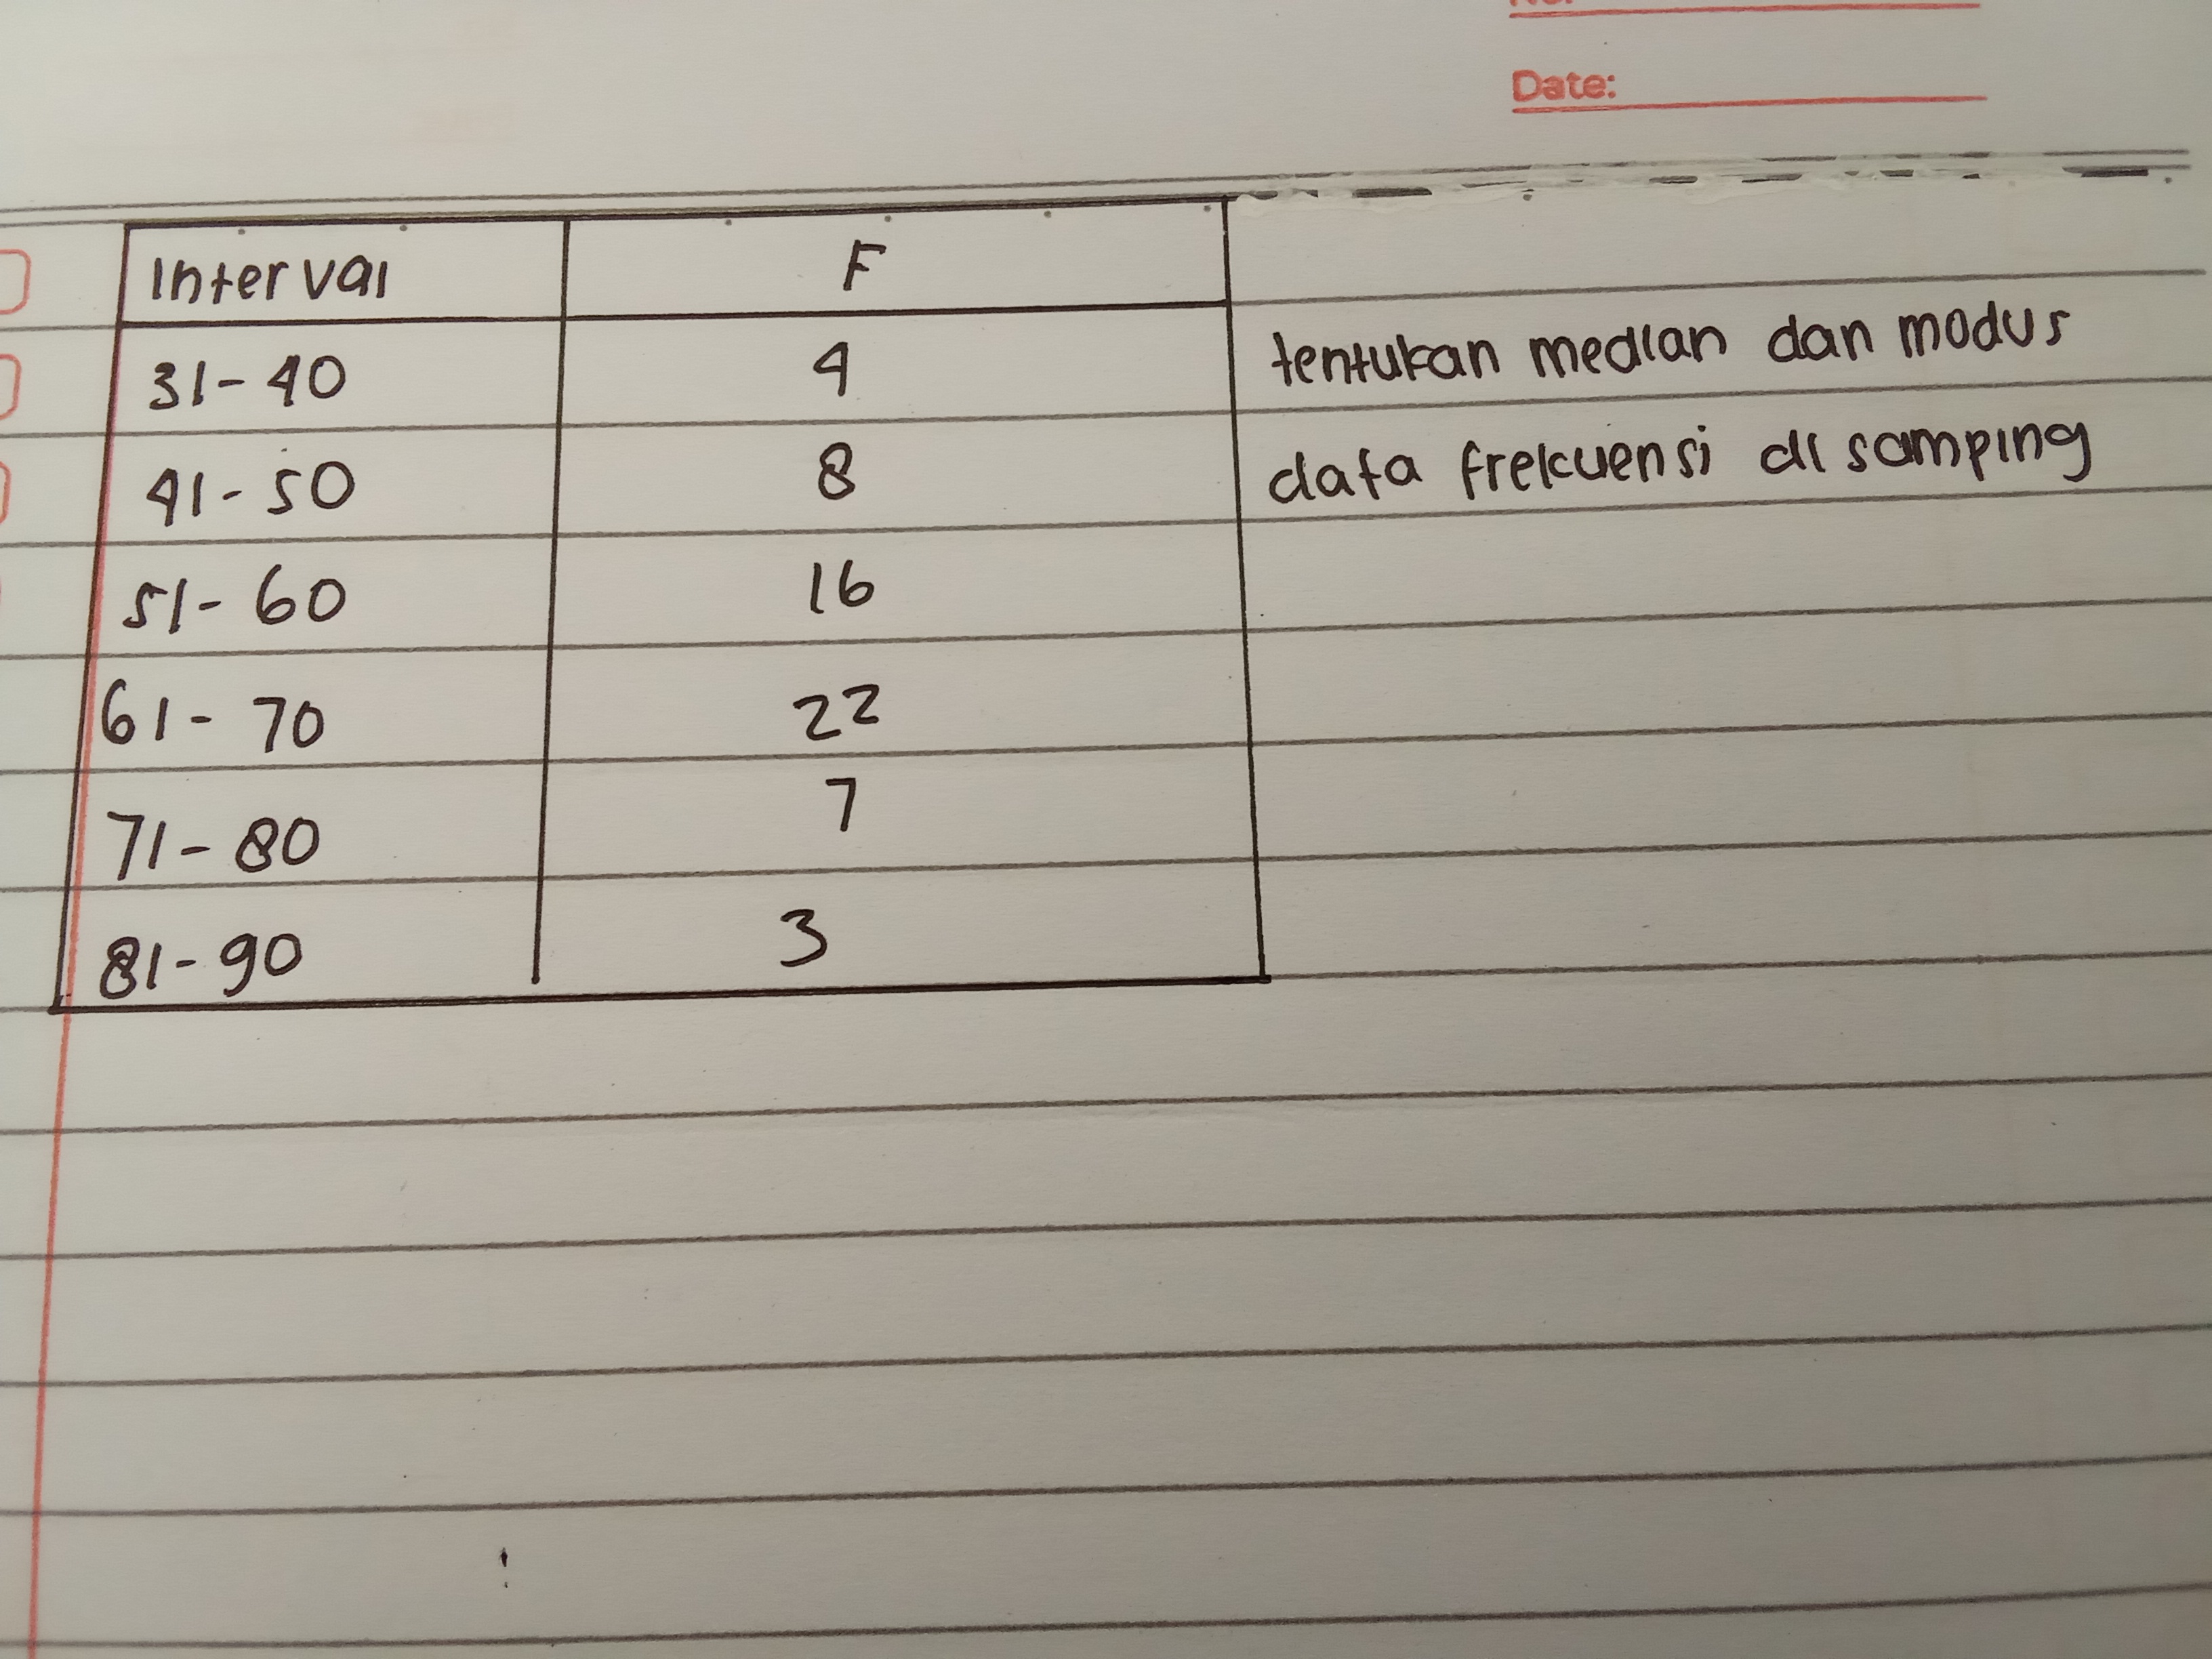 Date:
Interval F
31-40 4 tentukan median dan modus
41-50 8 data frekuensi di samping
51-60 16
61-70 22
71-80 7
81-90 3